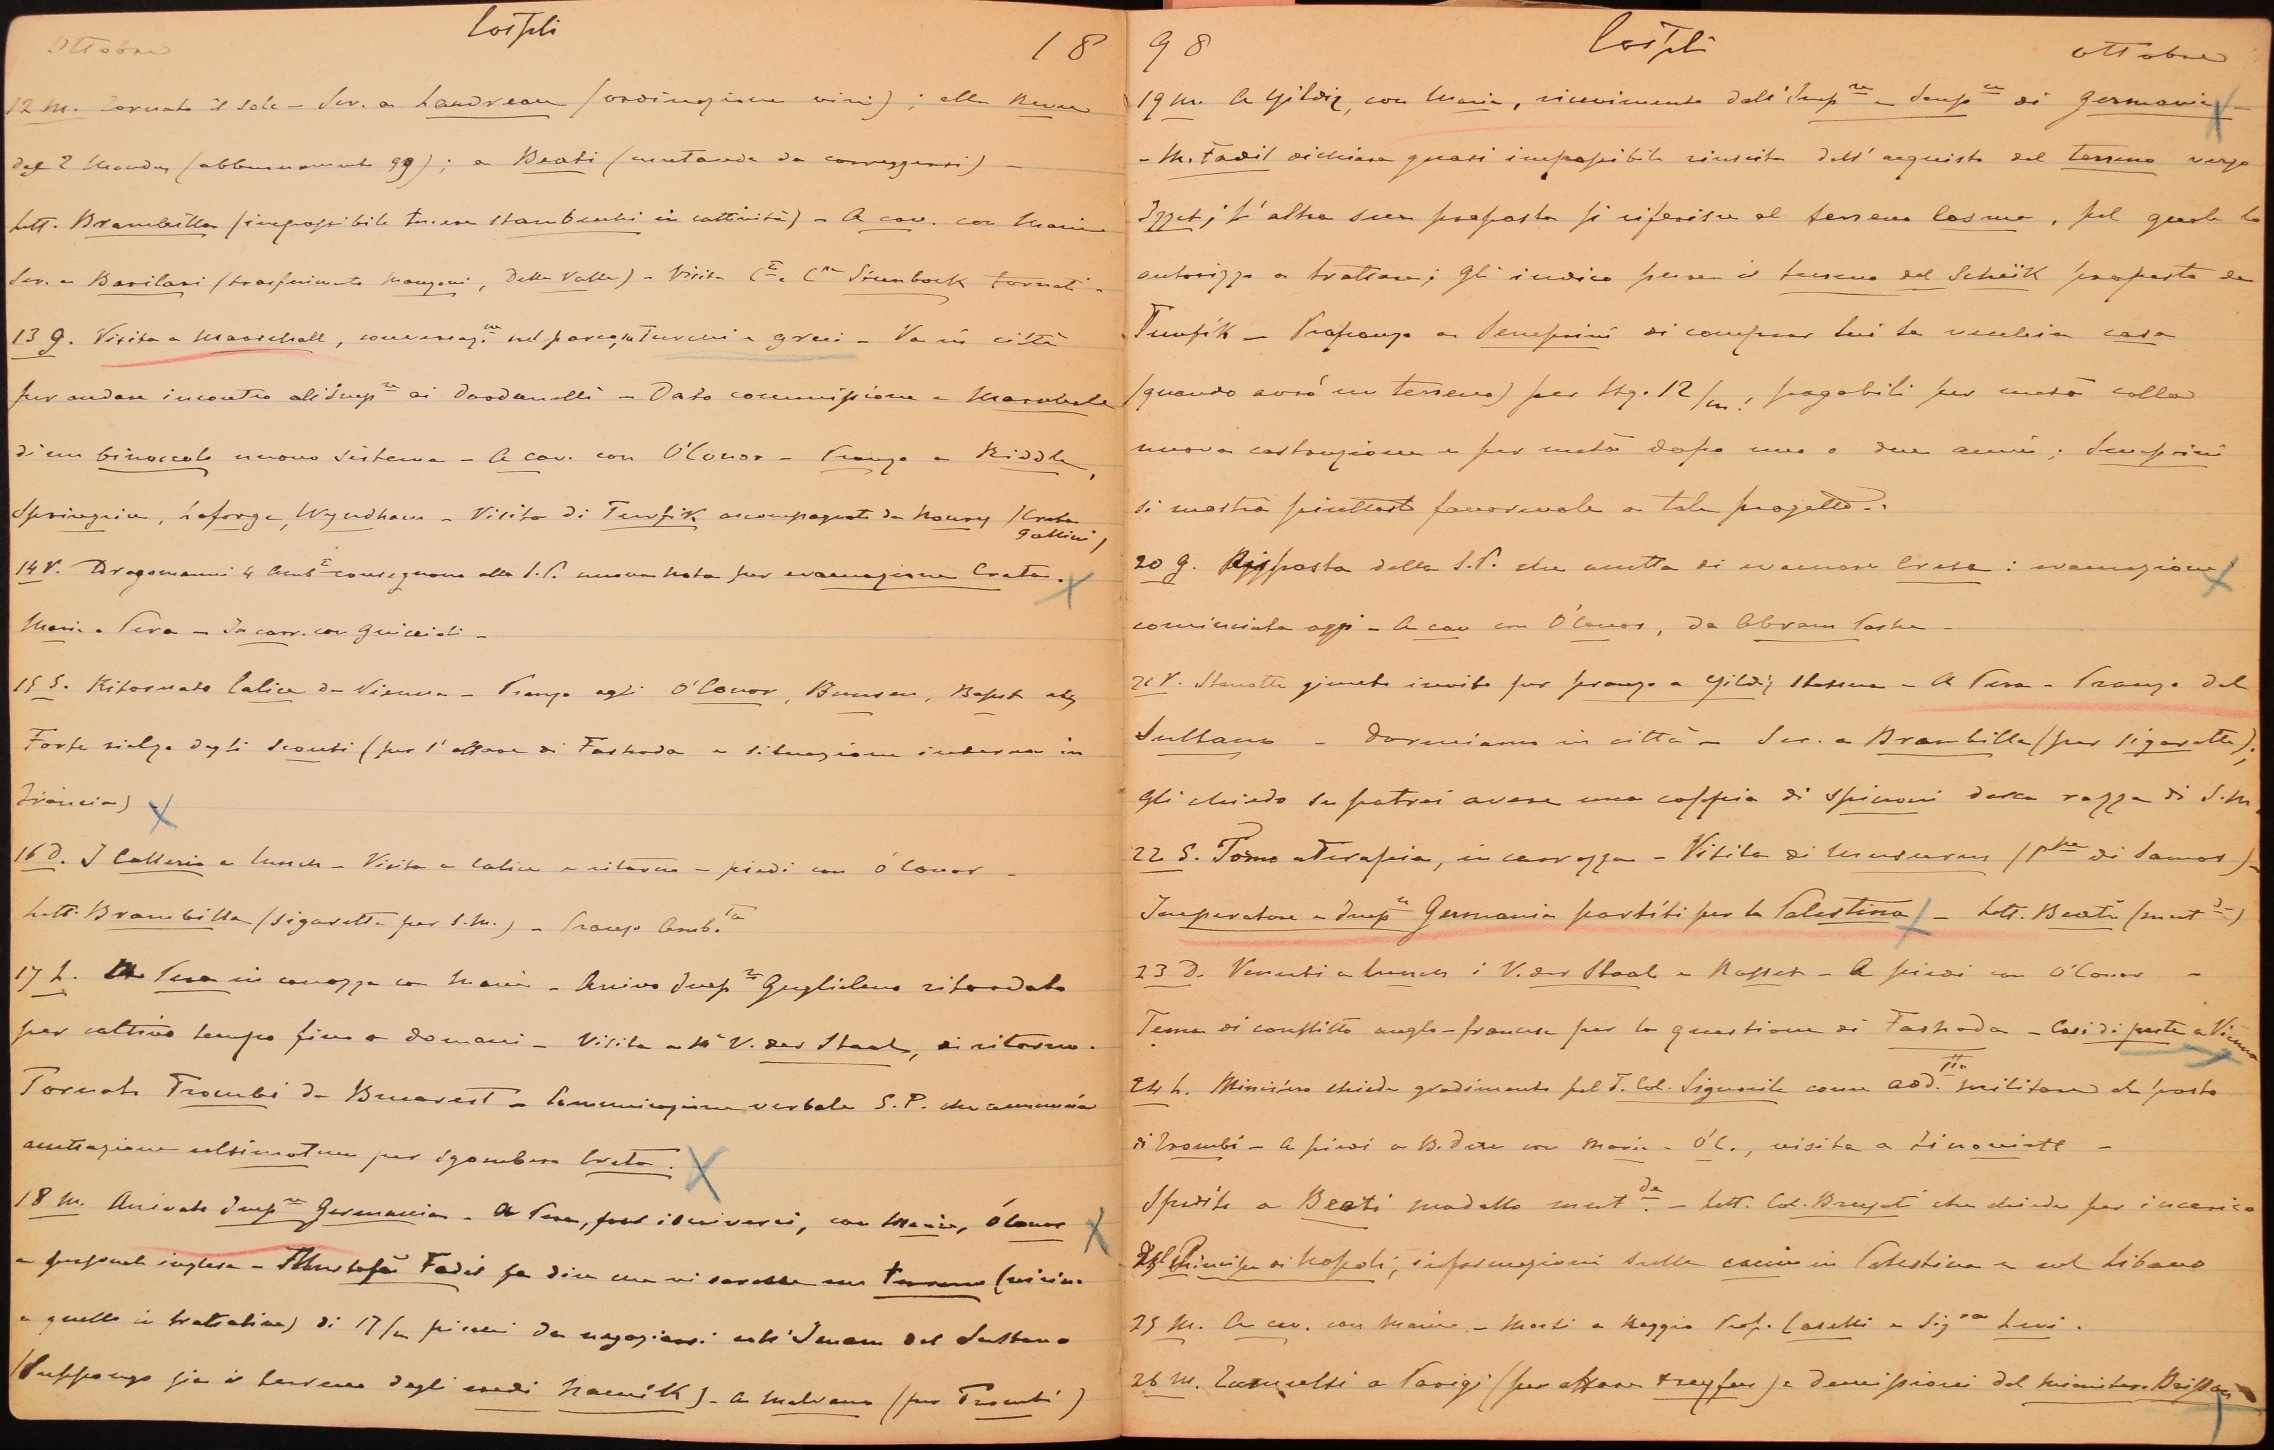 Ottobre Costpli 18
12 M. Tornato il sole - Scr. a Landreau (ordinazione vini); alla Revue
des 2 Mondes (abbonnamento 99); a Beati (mutande da correggersi) -
Lett. Brambilla (impossibile tenere stambecchi in cattività) - A cav. con Maria
Scr. a Basilari (trasferimento Manzoni, Della Valle) - Visita Cte e Csse Steenbock tornati -
13 G. Visita a Marschall, conversaze nel parco, su Turchi e greci - Va in città
per andare incontro all'Impre ai Dardanelli - Dato commissione a Marschall
di un binoccolo nuovo sistema - A cav. con O'Conor - Pranzo a Riddle,
Springrice, Laforge, Wyndham - Visita di Tewfik accompagnato da Noury (Creta
Gallini)
14 V. Dragomanni 4 Ambi consegnano alla S.P. nuova nota per evacuazione Creta.
Maria a Pera - In carr. con Guiccioli -
15 S. Ritornato Calice da Vienna - Pranzo agli O'Conor, Bunsen, Bapst etc
Forte rialzo degli sconti (per l'affare di Fashoda e situazione interna in
Francia)
16 D. I Catteria a lunch - Visita a Calice e ritorno a piedi con O'Conor -
Lett. Brambilla (sigarette per S.M.) - Pranzo Amb.ta
17 L. A Pera in carrozza con Maria - Arrivo Impre Guglielmo ritardato
per cattivo tempo fino a domani - Visita a Me V. der Staal, di ritorno.
Tornato Trombi da Bucarest - Comunicazione verbale S.P. che annuncia
accettazione ultimatum per sgombero Creta.
18 M. Arrivato Impre Germania - A Pera, per iscriverci, con Maria, O'Conor
e personale inglese - Mustafà Fadil fa dire che vi sarebbe un terreno (vicino
a quello in trattative) di 17/m piconi da negoziarsi coll'Imam del Sultano
(Suppongo sia il terreno degli eredi Namik) - A Malvano (per Trombi)
98 Costpli Ottobre
19 M. A Yildiz, con Maria, ricevimento dall'Impre e Impce di Germania -
- M. Fadil dichiara quasi impossibile riuscita dell'acquisto del terreno verso
Izzet; l'altra sua proposta si riferisce al terreno Cosma, pel quale lo
autorizzo a trattare; gli indico pure il terreno del Scheïk proposto da
Tewfik - Propongo a Semprini di comprar lui la vecchia casa
(quando avrò un terreno) per Ltq. 12/m! pagabili per metà colla
nuova costruzione e per metà dopo uno o due anni; Semprini
si mostra piuttosto favorevole a tale progetto..
20 G. Risposta della S.P. che accetta di evacuare Creta: evacuazione
cominciata oggi - A cav con O'Conor, da Abram Pasha -
21 V. Stanotte giunto invito per pranzo a Yildiz stasera - A Pera - Pranzo dal
Sultano - Dormiamo in città - Scr. a Brambilla (per sigarette);
gli chiedo se potrei avere una coppia di spinoni della razza di S.M.
22 S. Torno a Terapia, in carrozza - Visita di Musurus (Ppe di Samos) -
Imperatore e Impce Germania partiti per la Palestina - Lett. Beati (mutde)
23 D. Venuti a lunch i V. der Staal e Nasset - A piedi con O'Conor -
Tema di conflitto anglo-francese per la questione di Fashoda - Casi di peste a Vienna
24 L. Ministero chiede gradimento pel T. Col. Signorile come add.tto militare al posto
di Trombi - A piedi a B. Dere con Maria - O'C., visita a Zinowieff -
Spedito a Beati modello mutde - Lett. Col. Brusati che chiede per incarico
del Principe di Napoli, informazioni sulle caccie in Palestina e nel Libano
25 M. A cav. con Maria - Morti a Reggio Prof. Caselli e Sigra Levi.
26 M. Tumulti a Parigi (per affare Dreyfus) e demissioni del ministero Brisson